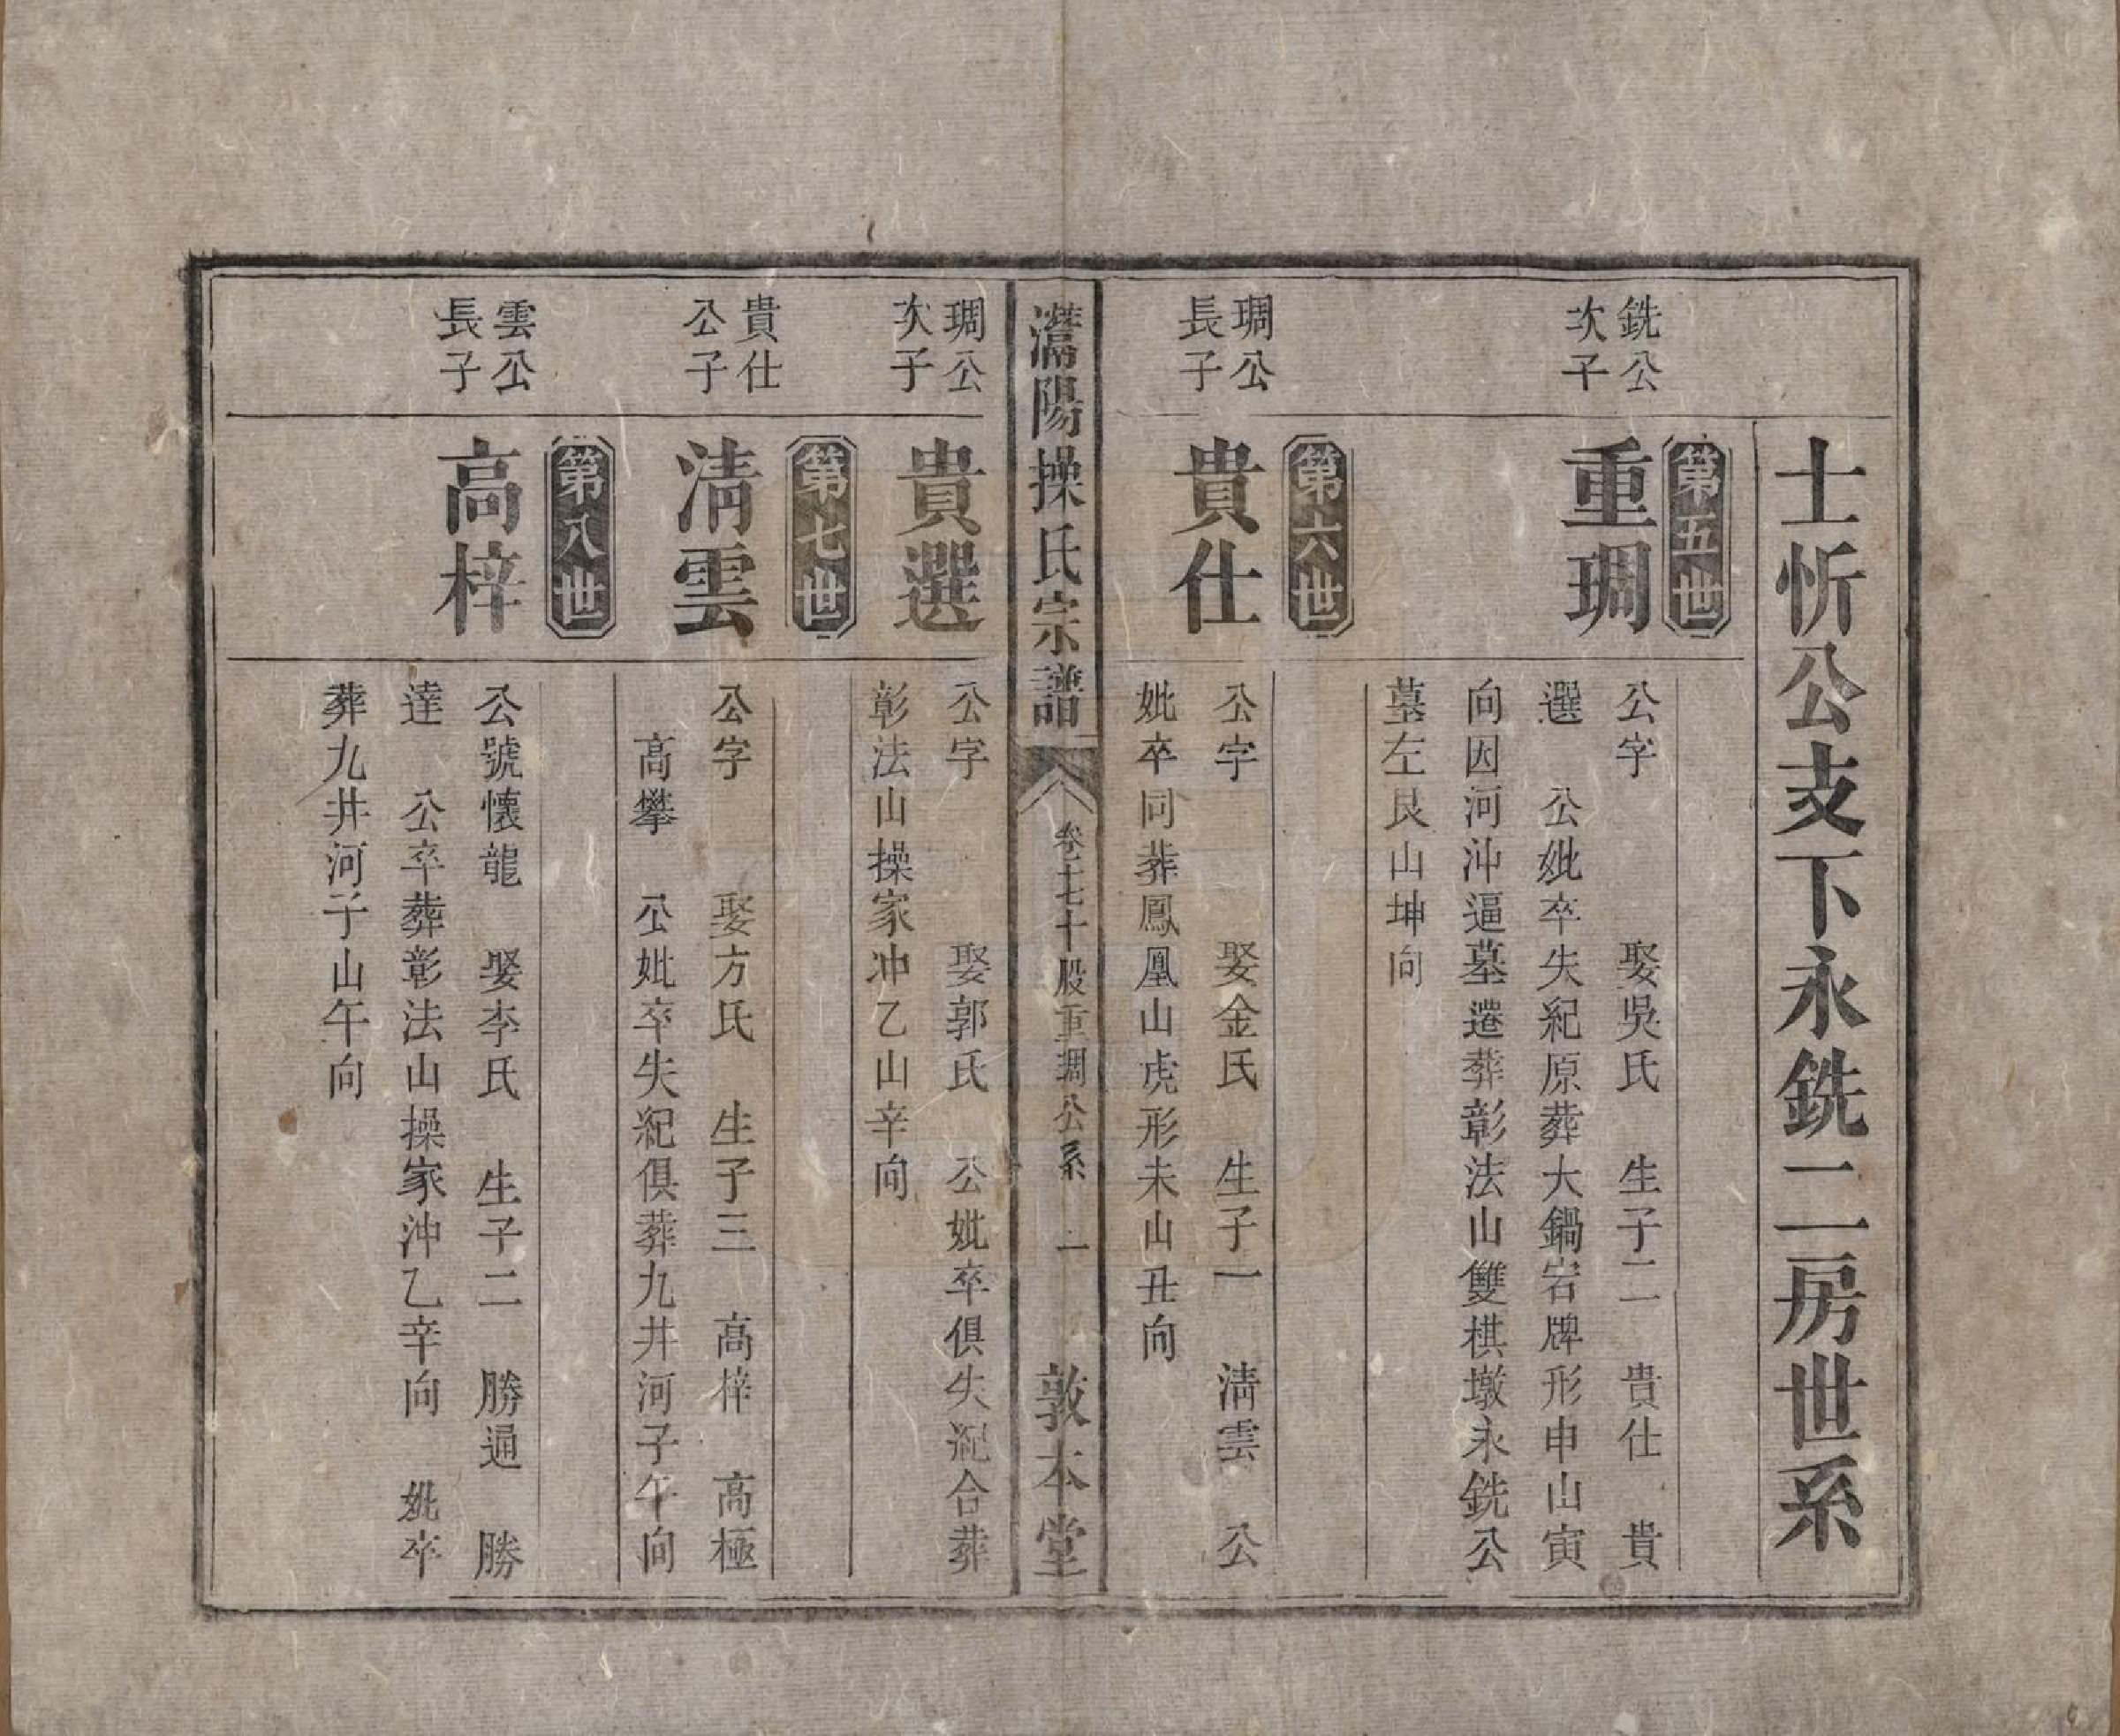 士忻公支下永銑二房世系
第五世
銑公
次子
重琱
公字 娶吳氏 生子二 貴仕 貴
選 公妣卒失紀原葬大鍋岩牌形申山寅
向因河沖逼墓遷葬彰法山雙棋墩永銑公
墓左艮山坤向
第六世
琱公
長子
貴仕
公字 娶金氏 生子一 清雲 公
妣卒同葬鳳凰山虎形未山丑向
灊陽操氏宗譜
卷十七十股重琱公系 二
敦本堂
琱公
次子
貴選
公字 娶郭氏 公妣卒俱失紀合葬
彰法山操家冲乙山辛向
第七世
貴仕
公子
清雲
公字 娶方氏 生子三 高梓 高極
高攀 公妣卒失紀俱葬九井河子午向
第八世
雲公
長子
高梓
公號懷龍 娶李氏 生子二 勝通 勝
達 公卒葬彰法山操家沖乙辛向 妣卒
葬九井河子山午向